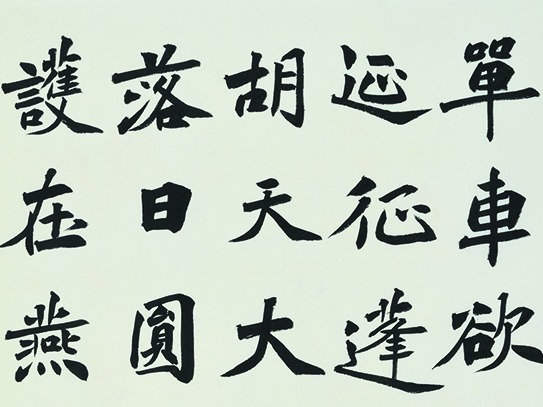 單車欲
延征蓬
胡天大
落日圓
護在燕